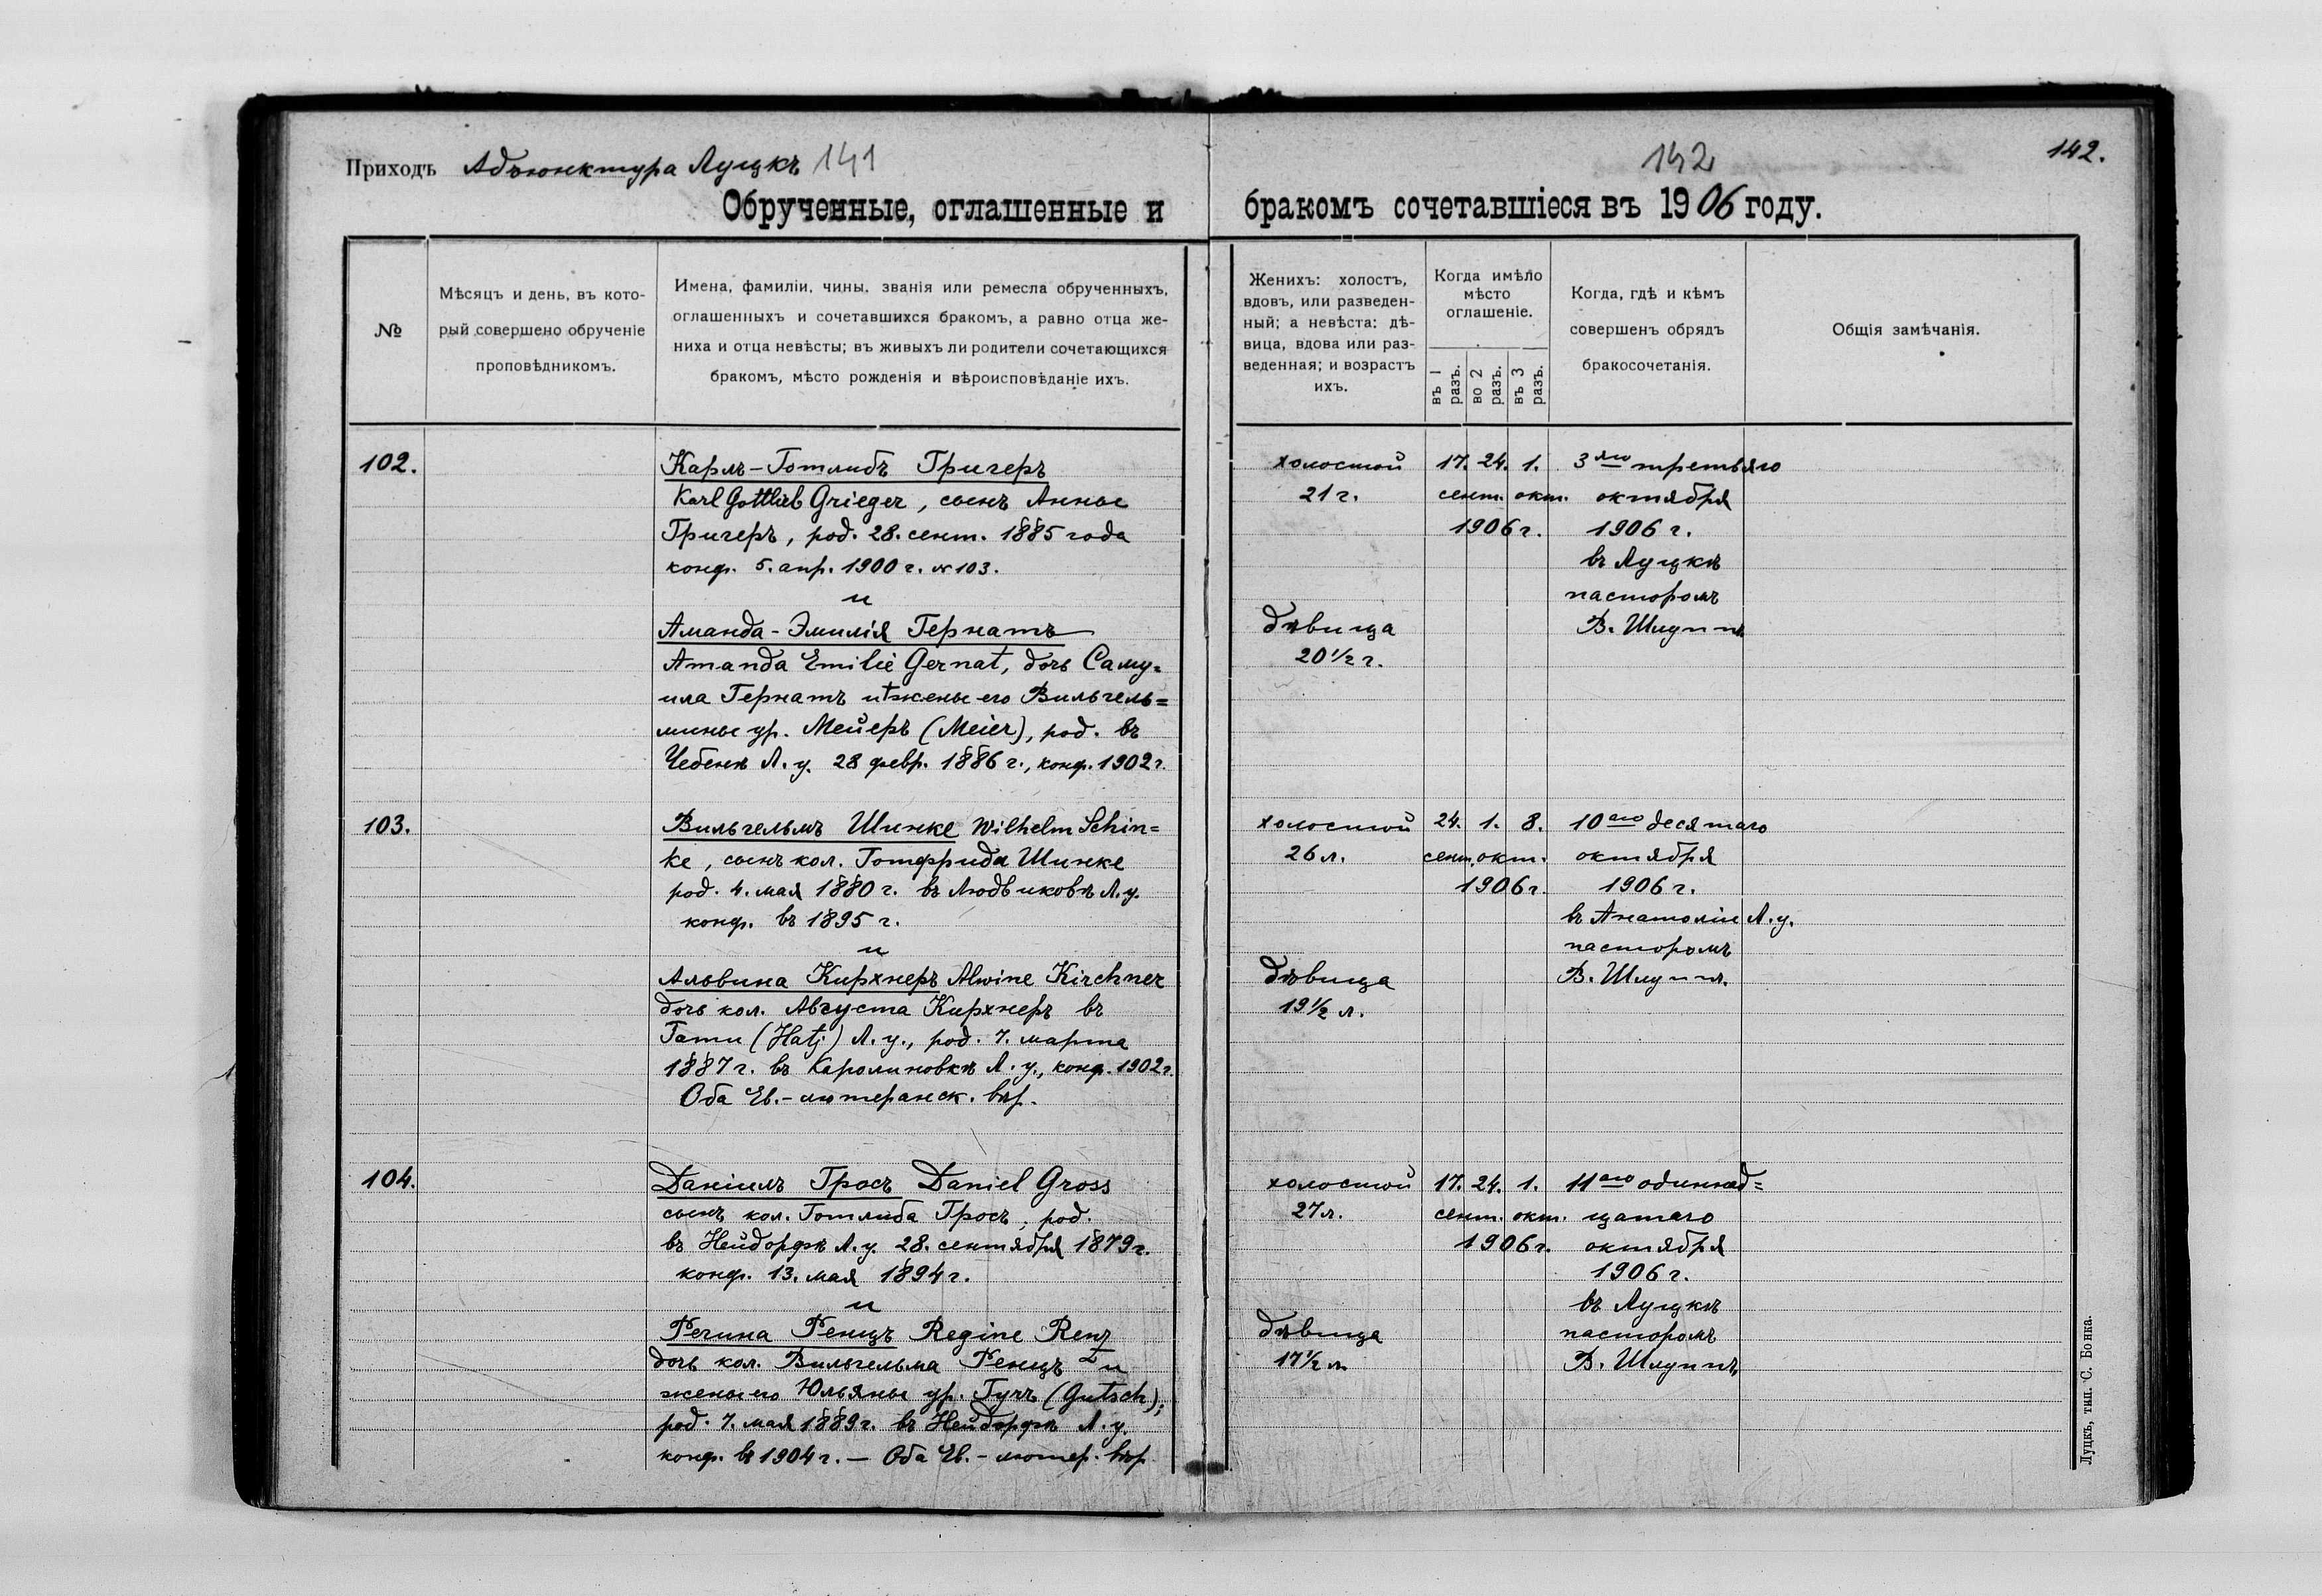 Приходъ Адъюнктура Луцкъ 141
Обрученные, оглашенные и
№
Мѣсяцъ и день, въ кото-
рый совершено обрученіе
проповѣдникомъ.
Имена, фамиліи, чины, званія или ремесла обрученныхъ,
оглашенныхъ и сочетавшихся бракомъ, а равно отца же-
ниха и отца невѣсты; въ живыхъ ли родители сочетающихся
бракомъ, мѣсто рожденія и вѣроисповѣданіе ихъ.
102.
Карлъ-Готлибъ Григеръ
Karl Gottlieb Grieger, сынъ Анны
Григеръ, род. 28. сент. 1885 года
конф. 5. апр. 1900 г. № 103.
и
Аманда-Эмилія Гернатъ
Amanda Emilie Gernat, дочь Саму=
ила Гернатъ и † жены его Вильгель=
мины ур. Мейеръ (Meier), род. въ
Чебенѣ Л. у. 28 февр. 1886 г., конф. 1902 г.
103.
Вильгельмъ Шинке Wilhelm Schin=
ke, сынъ кол. Готфрида Шинке
род. 4. мая 1880 г. въ Людвиковѣ Л. у.
конф. въ 1895 г.
и
Альвина Кирхнеръ Alwine Kirchner
дочь кол. Августа Кирхнеръ въ
Гати (Hatj) Л. у., род. 7. марта
1887 г. въ Каролиновкѣ Л. у., конф. 1902 г.
Оба Ев.-лютеранск. вѣр.
104.
Даніилъ Гросъ Daniel Gross
сынъ кол. Готлиба Гросъ, род.
въ Нейдорфѣ Л. у. 28. сентября 1879 г.
конф. 13. мая 1894 г.
и
Регина Ренцъ Regine Renz
дочь кол. Вильгельма Ренцъ и
жены его Юльяны ур. Гучъ (Gutsch);
род. 7. мая 1889 г. въ Нейдорфѣ Л. у.
конф. въ 1904 г. — Оба Ев.-лютер. вѣр.
142
142.
бракомъ сочетавшіеся въ 1906 году.
Женихъ: холостъ,
вдовъ, или разведен-
ный; а невѣста: дѣ-
вица, вдова или раз-
веденная; и возрастъ
ихъ.
Когда имѣло
мѣсто
оглашеніе.
въ 1 разъ.
во 2 разъ.
въ 3 разъ.
Когда, гдѣ и кѣмъ
совершенъ обрядъ
бракосочетанія.
Общія замѣчанія.
холостой 17. 24. 1. 3яго третьяго
21 г. сент. окт. октября
1906 г. 1906 г.
въ Луцкѣ
пасторомъ
дѣвица В. Шлуппъ
20½ г.
холостой 24. 1. 8. 10аго десятаго
26 л. сент. окт. октября
1906 г. 1906 г.
въ Анатоліи Л. у.
пасторомъ
дѣвица В. Шлуппъ.
19½ л.
холостой 17. 24. 1. 11аго одиннад=
27 л. сент. окт. цатаго
1906 г. октября
1906 г.
въ Луцкѣ
дѣвица пасторомъ
17½ л. В. Шлуппъ
Луцкъ, тип. С. Бонка.